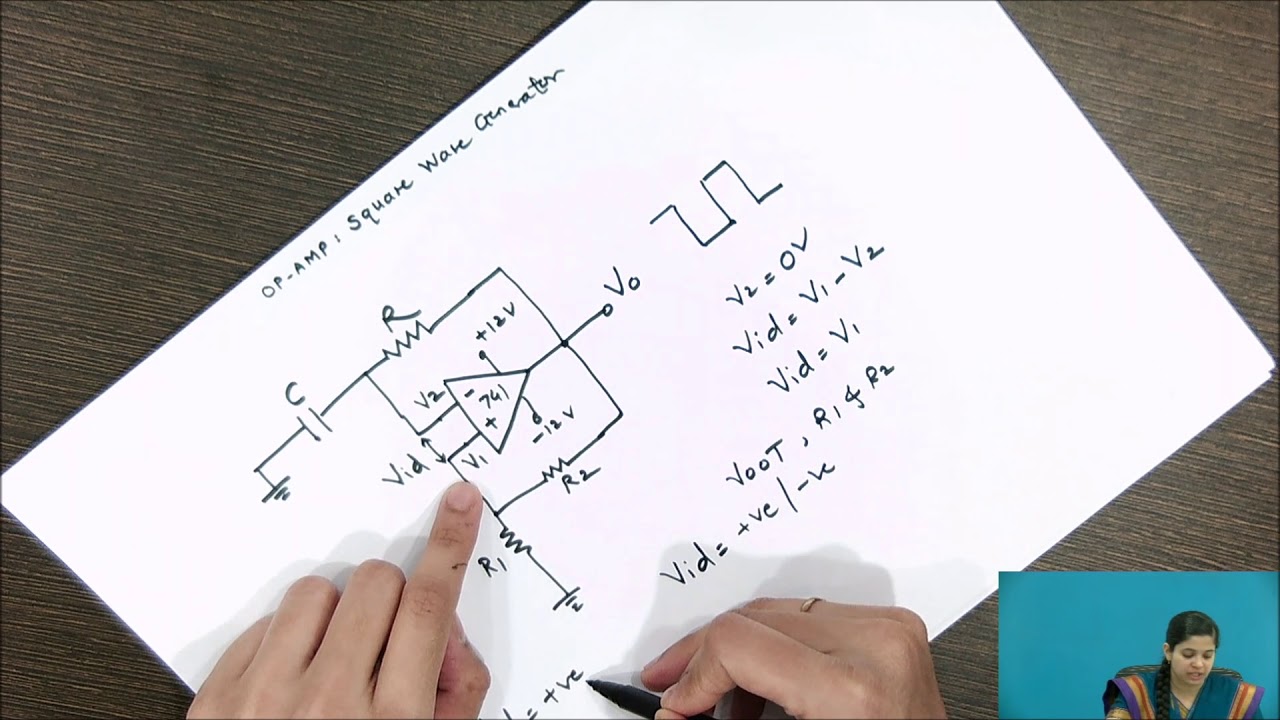 OP-AMP: Square Wave Generator
R
C
V2
Vid
V1
-
741
+
+12V
-12V
Vo
R2
R1
V2 = 0V
Vid = V1 - V2
Vid = V1
VOOT, R1 & R2
Vid = +ve / -ve
= +ve